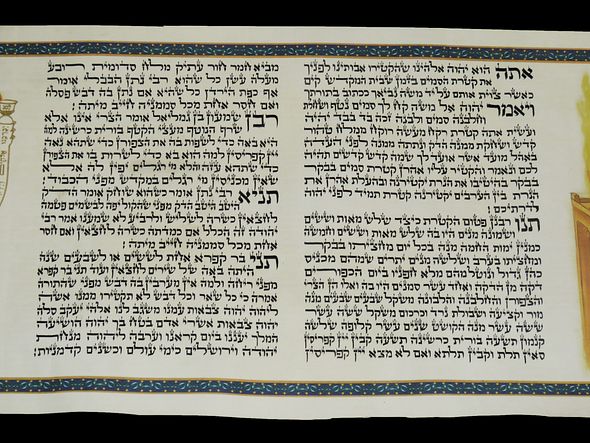 אתה הוא יהוה אלהינו שהקטירו אבותינו לפניך
את קטרת הסמים בזמן שבית המקדש קים
כאשר צוית אותם על יד משה נביאך ככתוב בתורתך
ויאמר יהוה אל משה קח לך סמים נטף ושחלת
וחלבנה סמים ולבנה זכה בד בבד יהיה
ועשית אתה קטרת רקח מעשה רוקח ממלח טהור
קדש ושחקת ממנה הדק ונתתה ממנה לפני העדת
באהל מועד אשר אועד לך שמה קדש קדשים תהיה
לכם ונאמר והקטיר עליו אהרן קטרת סמים בבקר
בבקר בהיטיבו את הנרת יקטירנה ובהעלת אהרן את
הנרת בין הערבים יקטירנה קטרת תמיד לפני יהוה
לדרתיכם:
תנו רבנן פטום הקטרת כיצד שלש מאות וששים
ושמונה מנים היו בה שלש מאות וששים וחמשה
כמנין ימות החמה מנה בכל יום מחציתו בבקר
ומחציתו בערב ושלשה מנים יתרים שמהם מכניס
כהן גדול ונוטל מהם מלא חפניו ביום הכפורים
דקה מן הדקה ואחד עשר סמנים היו בה ואלו הן הצרי
והצפורן והחלבנה והלבונה משקל שבעים שבעים מנה
מור וקציעה ושבולת נרד וכרכום משקל ששה עשר
ששה עשר מנה הקושט שנים עשר קלופה שלשה
קנמון תשעה בורית כרשינה תשעה קבין יין קפריסין
סאין תלת וקבין תלתא ואם לא מצא יין קפריסין
מביא חמר חור עתיק מלח סדומית רובע
מעלה עשן כל שהוא רבי נתן הבבלי אומר
אף כפת הירדן כל שהיא אם נתן בה דבש פסלה
ואם חסר אחת מכל סממניה חייב מיתה:
רבן שמעון בן גמליאל אומר הצרי אינו אלא
שרף הנוטף מעצי הקטף בורית כרשינה למה
היא באה כדי לשפות בה את הצפורן כדי שתהא נאה
יין קפריסין למה הוא בא כדי לשרות בו את הצפורן
כדי שתהא עזה והלא מי רגלים יפין לה אלא
שאין מכניסין מי רגלים במקדש מפני הכבוד:
תניא רבי נתן אומר כשהוא שוחק אומר הדק
היטב היטב הדק מפני שהקול יפה לבשמים פטמה
לחצאין כשרה לשליש ולרביע לא שמענו אמר רבי
יהודה זה הכלל אם כמדתה כשרה לחצאין ואם חסר
אחת מכל סממניה חייב מיתה:
תני בר קפרא אחת לששים או לשבעים שנה
היתה באה של שירים לחצאין ועוד תני בר קפרא
מפני ריחה ולמה אין מערבין בה דבש מפני שהתורה
אמרה כי כל שאר וכל דבש לא תקטירו ממנו אשה
ליהוה יהוה צבאות עמנו משגב לנו אלהי יעקב סלה
יהוה צבאות אשרי אדם בטח בך יהוה הושיעה
המלך יעננו ביום קראנו וערבה ליהוה מנחת
יהודה וירושלים כימי עולם וכשנים קדמניות: